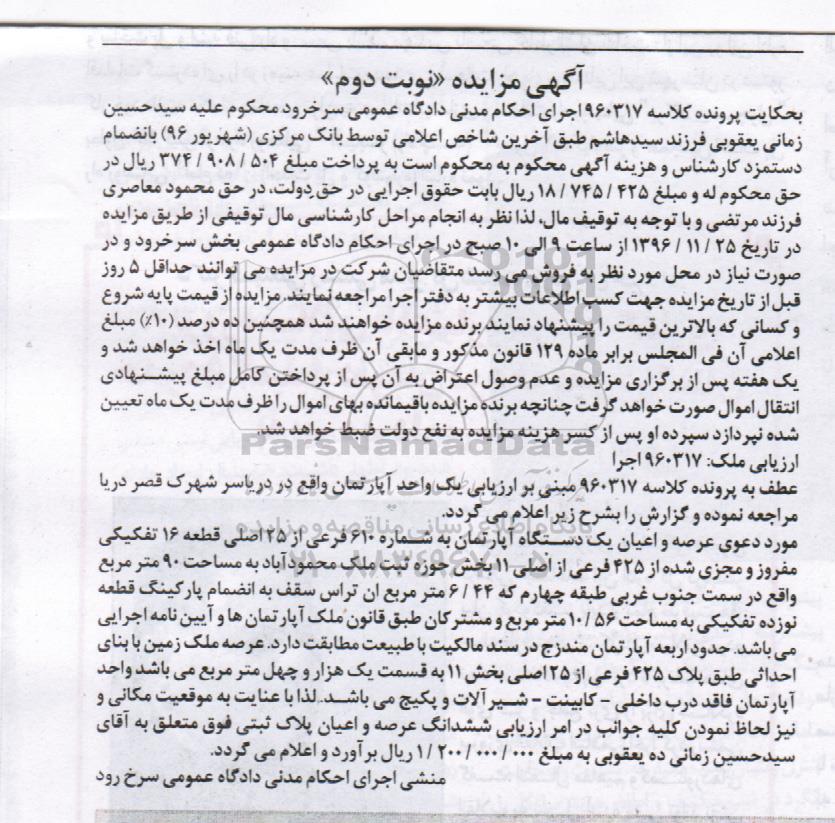 آگهی مزایده «نوبت دوم»
بحکایت پرونده کلاسه ۹۶۰۳۱۷ اجرای احکام مدنی دادگاه عمومی سرخرود محکوم علیه سید حسین
زمانی یعقوبی فرزند سیدهاشم طبق آخرین شاخص اعلامی توسط بانک مرکزی (شهریور ۹۶) بانضمام
دستمزد کارشناس و هزینه آگهی محکوم به محکوم است به پرداخت مبلغ ۵۰۴ / ۹۰۸ / ۳۷۴ ریال در
حق محکوم له و مبلغ ۴۲۵ / ۷۴۵ / ۱۸ ریال بابت حقوق اجرایی در حق دولت، در حق محمود معاصری
فرزند مرتضی و با توجه به توقیف مال، لذا نظر به انجام مراحل کارشناسی مال توقیفی از طریق مزایده
در تاریخ ۲۵ / ۱۱ / ۱۳۹۶ از ساعت ۹ الی ۱۰ صبح در اجرای احکام دادگاه عمومی بخش سرخرود و در
صورت نیاز در محل مورد نظر به فروش می رسد متقاضیان شرکت در مزایده می توانند حداقل ۵ روز
قبل از تاریخ مزایده جهت کسب اطلاعات بیشتر به دفتر اجرا مراجعه نمایند. مزایده از قیمت پایه شروع
و کسانی که بالاترین قیمت را پیشنهاد نمایند برنده مزایده خواهند شد همچنین ده درصد (۱۰٪) مبلغ
اعلامی آن فی المجلس برابر ماده ۱۲۹ قانون مذکور و مابقی آن ظرف مدت یک ماه اخذ خواهد شد و
یک هفته پس از برگزاری مزایده و عدم وصول اعتراض به آن پس از پرداختن کامل مبلغ پیشنهادی
انتقال اموال صورت خواهد گرفت چنانچه برنده مزایده باقیمانده بهای اموال را ظرف مدت یک ماه تعیین
شده نپردازد سپرده او پس از کسر هزینه مزایده به نفع دولت ضبط خواهد شد.
ParsNamadData
ارزیابی ملک: ۹۶۰۳۱۷ اجرا
عطف به پرونده کلاسه ۹۶۰۳۱۷ مبنی بر ارزیابی یک واحد آپارتمان واقع در دریاسر شهرک قصر دریا
مراجعه نموده و گزارش را بشرح زیر اعلام می گردد.
مورد دعوی عرصه و اعیان یک دستگاه آپارتمان به شماره ۶۱۰ فرعی از ۲۵ اصلی قطعه ۱۶ تفکیکی
مفروز و مجزی شده از ۴۲۵ فرعی از اصلی ۱۱ بخش حوزه ثبت ملک محمودآباد به مساحت ۹۰ متر مربع
واقع در سمت جنوب غربی طبقه چهارم که ۴۴ / ۶ متر مربع ان تراس سقف به انضمام پارکینگ قطعه
نوزده تفکیکی به مساحت ۵۶ / ۱۰ متر مربع و مشترکان طبق قانون ملک آپارتمان ها و آیین نامه اجرایی
می باشد. حدود اربعه آپارتمان مندرج در سند مالکیت با طبیعت مطابقت دارد. عرصه ملک زمین با بنای
احداثی طبق پلاک ۴۲۵ فرعی از ۲۵ اصلی بخش ۱۱ به قسمت یک هزار و چهل متر مربع می باشد واحد
آپارتمان فاقد درب داخلی - کابینت - شیرآلات و پکیج می باشد. لذا با عنایت به موقعیت مکانی و
نیز لحاظ نمودن کلیه جوانب در امر ارزیابی ششدانگ عرصه و اعیان پلاک ثبتی فوق متعلق به آقای
سیدحسین زمانی ده یعقوبی به مبلغ ۰۰۰ / ۰۰۰ / ۲۰۰ / ۱ ریال برآورد و اعلام می گردد.
منشی اجرای احکام مدنی دادگاه عمومی سرخ رود